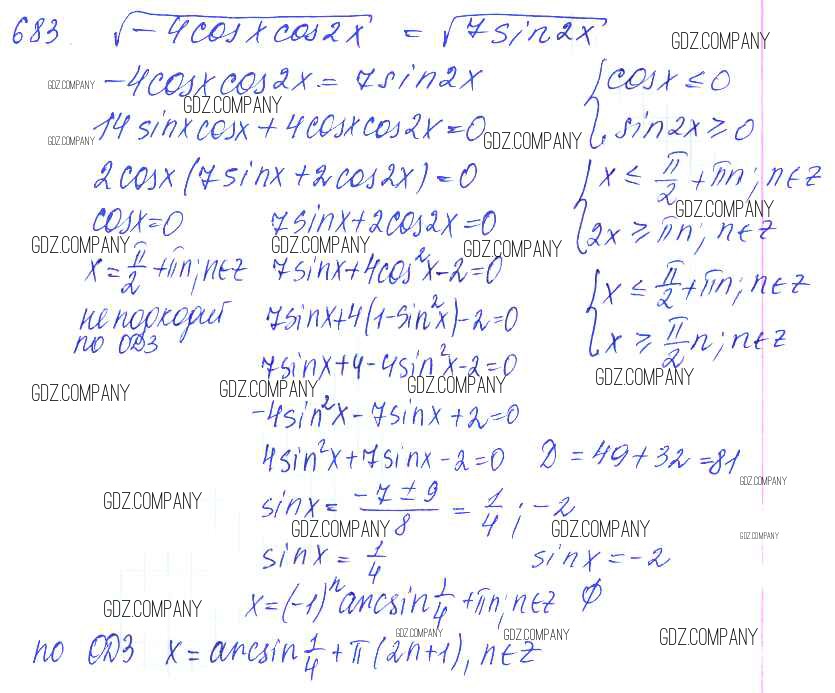 683 √-4cosxcos2x = √7sin2x
GDZ.COMPANY
-4cosxcos2x = 7sin2x { cosx ≤ 0
GDZ.COMPANY GDZ.COMPANY
14sinxcosx + 4cosxcos2x = 0 sin2x ≥ 0
GDZ.COMPANY GDZ.COMPANY
2cosx(7sinx + 2cos2x) = 0 { x ≤ π/2 + πn; n∈Z
GDZ.COMPANY
cosx = 0 7sinx + 2cos2x = 0 2x ≥ πn; n∈Z
GDZ.COMPANY GDZ.COMPANY GDZ.COMPANY
x = π/2 + πn; n∈Z 7sinx + 4cos²x - 2 = 0 { x ≤ π/2 + πn; n∈Z
не подходит 7sinx + 4(1 - sin²x) - 2 = 0 x ≥ π/2 n; n∈Z
по ОДЗ
7sinx + 4 - 4sin²x - 2 = 0
GDZ.COMPANY GDZ.COMPANY GDZ.COMPANY GDZ.COMPANY
-4sin²x - 7sinx + 2 = 0
4sin²x + 7sinx - 2 = 0 D = 49 + 32 = 81
GDZ.COMPANY GDZ.COMPANY
sinx = (-7 ± 9)/8 = 1/4; -2
GDZ.COMPANY GDZ.COMPANY GDZ.COMPANY
sinx = 1/4 sinx = -2
x = (-1)ⁿ arcsin 1/4 + πn; n∈Z ∅
GDZ.COMPANY
GDZ.COMPANY GDZ.COMPANY GDZ.COMPANY
по ОДЗ x = arcsin 1/4 + π(2n+1), n∈Z